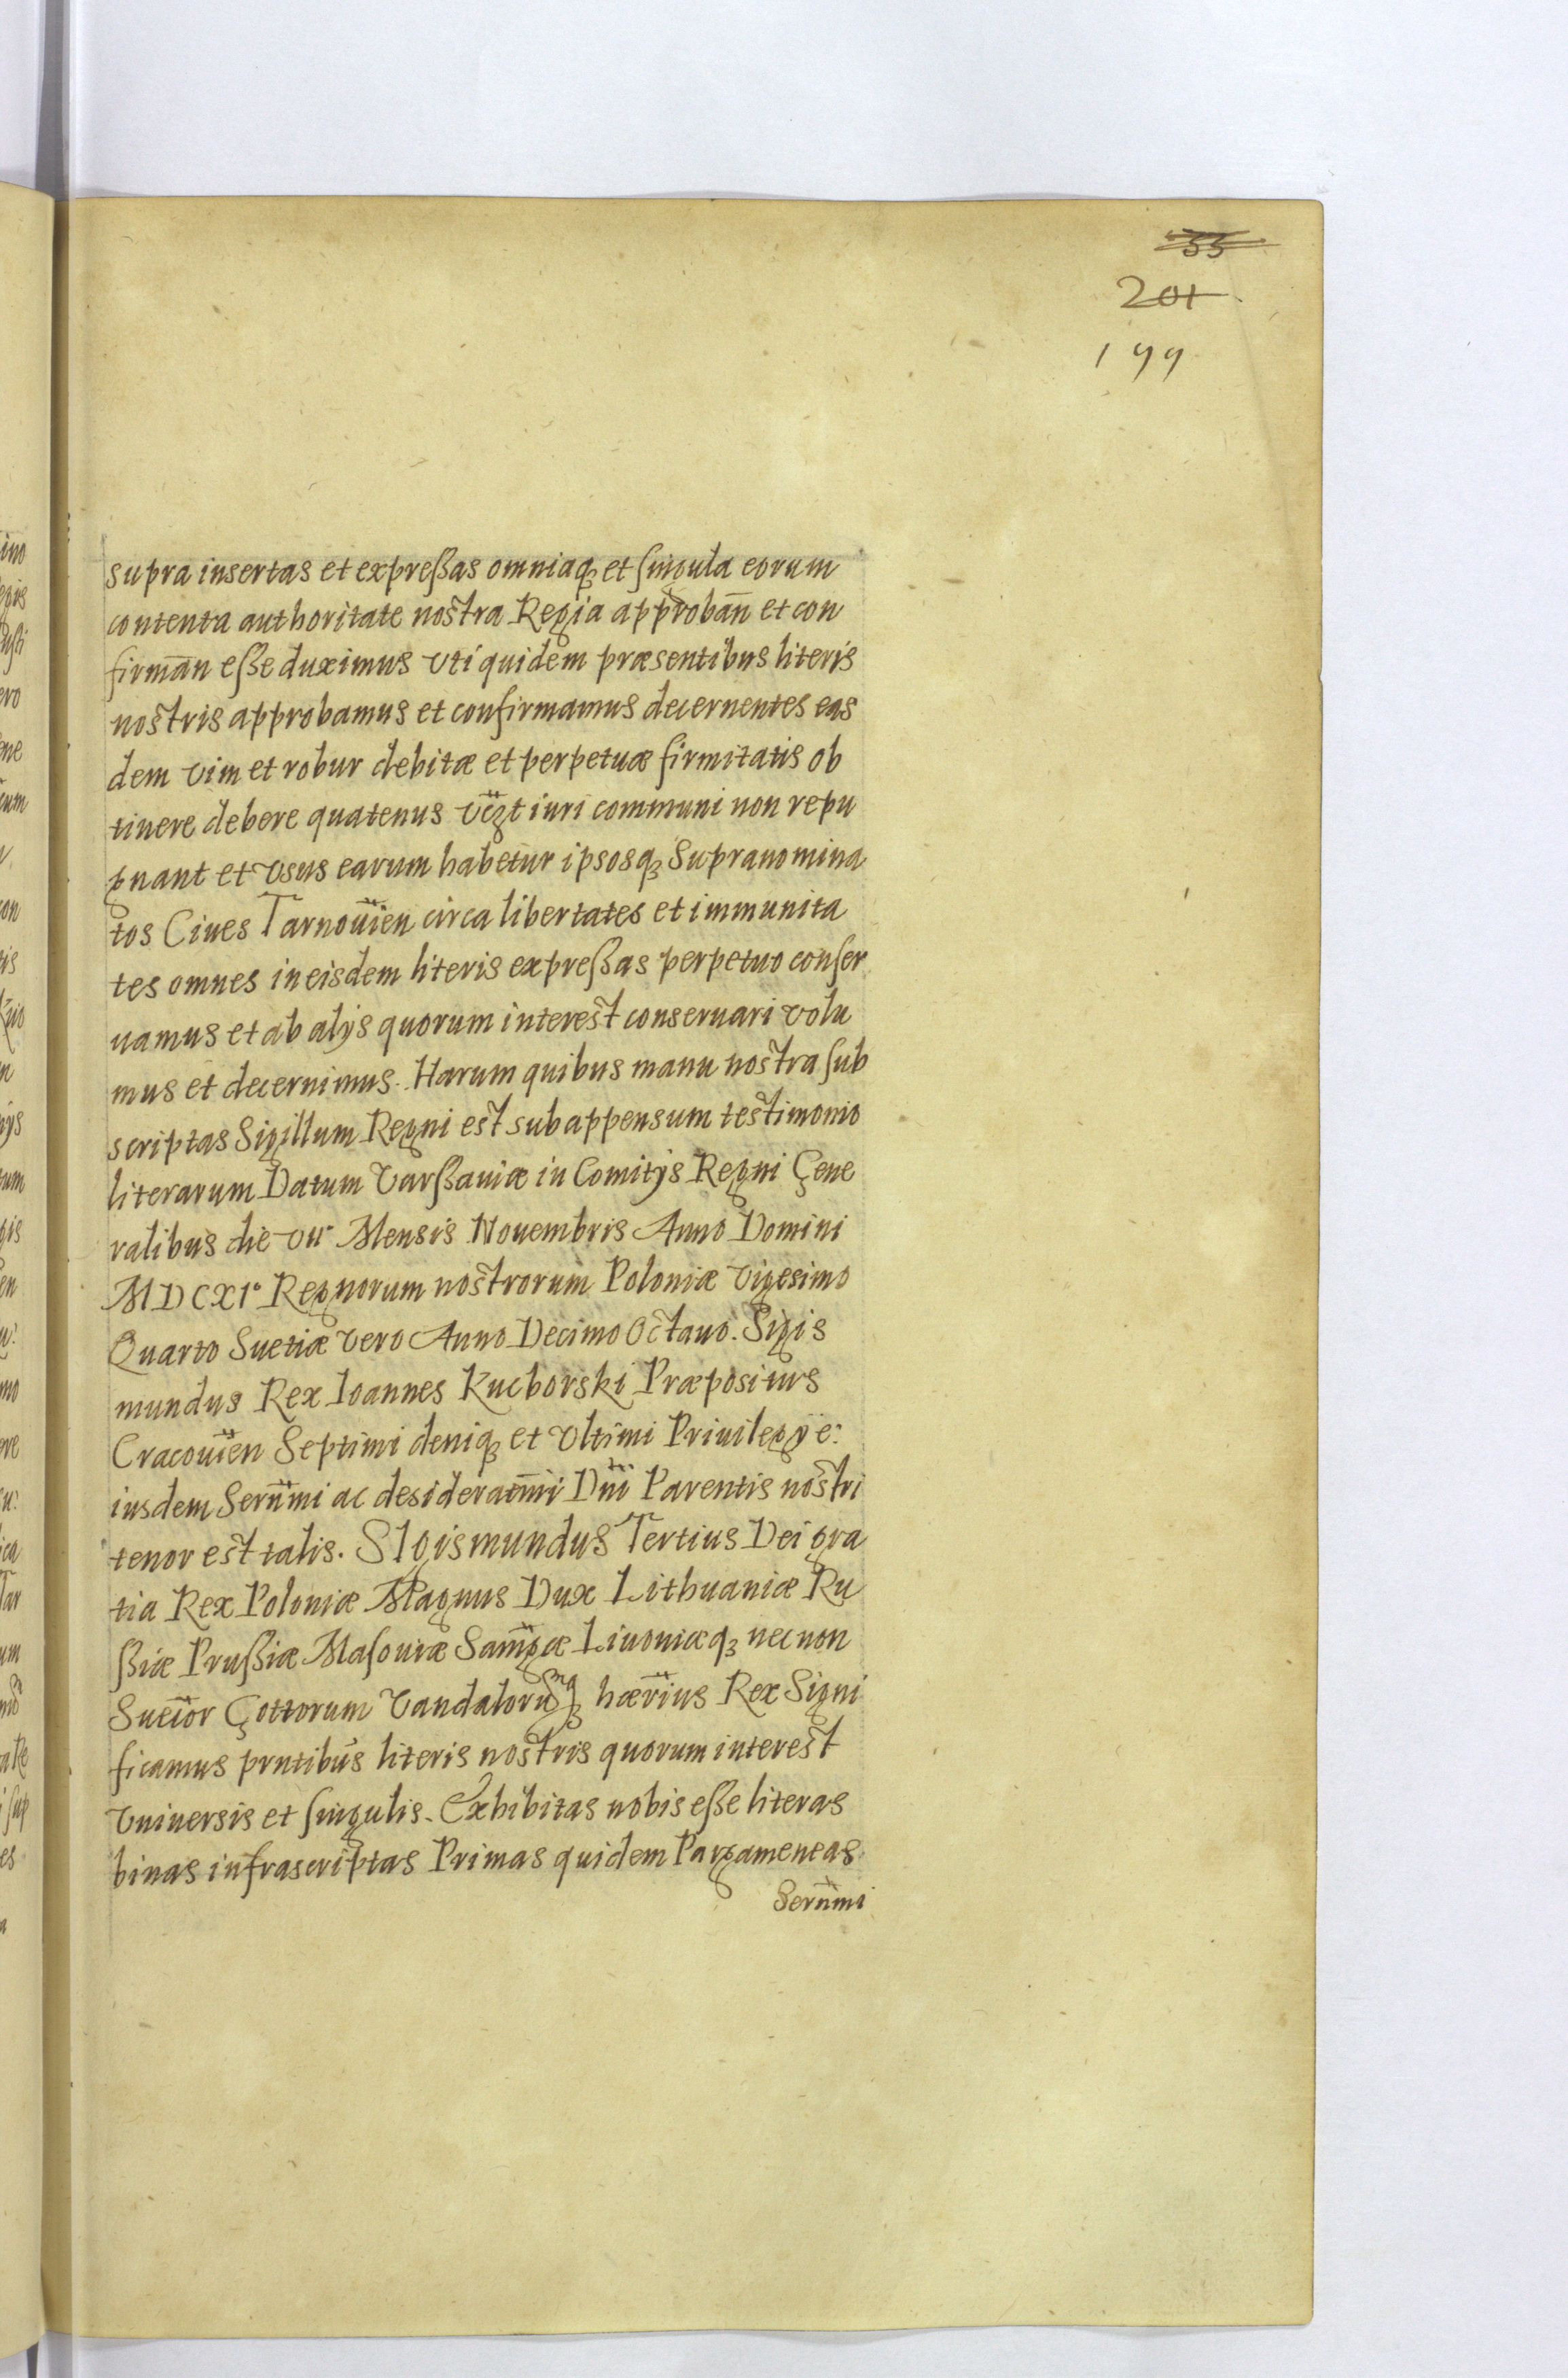 55
201
199
supra insertas et expreßas omniaq₃ et singula eorum
contenta authoritate nostra Regia approbañ et con
firmañ eße duximus vti quidem præsentibus literis
nostris approbamus et confirmamus decernentes eas
dem vim et robur debitæ et perpetuæ firmitatis ob
tinere debere quatenus vc̃zt iuri communi non repu
gnant et vsus earum habetur ipsosq₃ Supranomina
tos Ciues Tarnouien̄ circa libertates et immunita
tes omnes in eisdem literis expreßas perpetuo conser
uamus et ab alÿs quorum interest conseruari volu
mus et decernimus. Harum quibus manu nostra sub
scriptas Sigillum Regni est subappensum testimonio
literarum Datum Varßauiæ in Comitÿs Regni Gene
ralibus die VII Mensis Nouembris Anno Domini
MDCXI° Regnorum nostrorum Poloniæ Vigesimo
Quarto Suetiæ vero Anno Decimo Octauo. Sigis
mundus Rex Ioannes Kucborski Præpositus
Cracouien̄ Septimi deniq₃ et Vltimi Priuilegÿ e:
iusdem Sern̄mi ac desideratm̄i Dn̄i Parentis nostri
tenor est talis. SIgismundus Tertius Dei gra
tia Rex Poloniæ Magnus Dux Lithuaniæ Ru
ßiæ Prußiæ Masouiæ Sam̄gæ Liuoniæq₃ necnon
Suecor̄ Gottorum Vandalorūq₃ hær̄ius Rex Signi
ficamus prn̄tibus literis nostris quorum interest
Vniuersis et singulis. Exhibitas nobis eße literas
binas infrascriptas Primas quidem Pargameneas
Sern̄mi